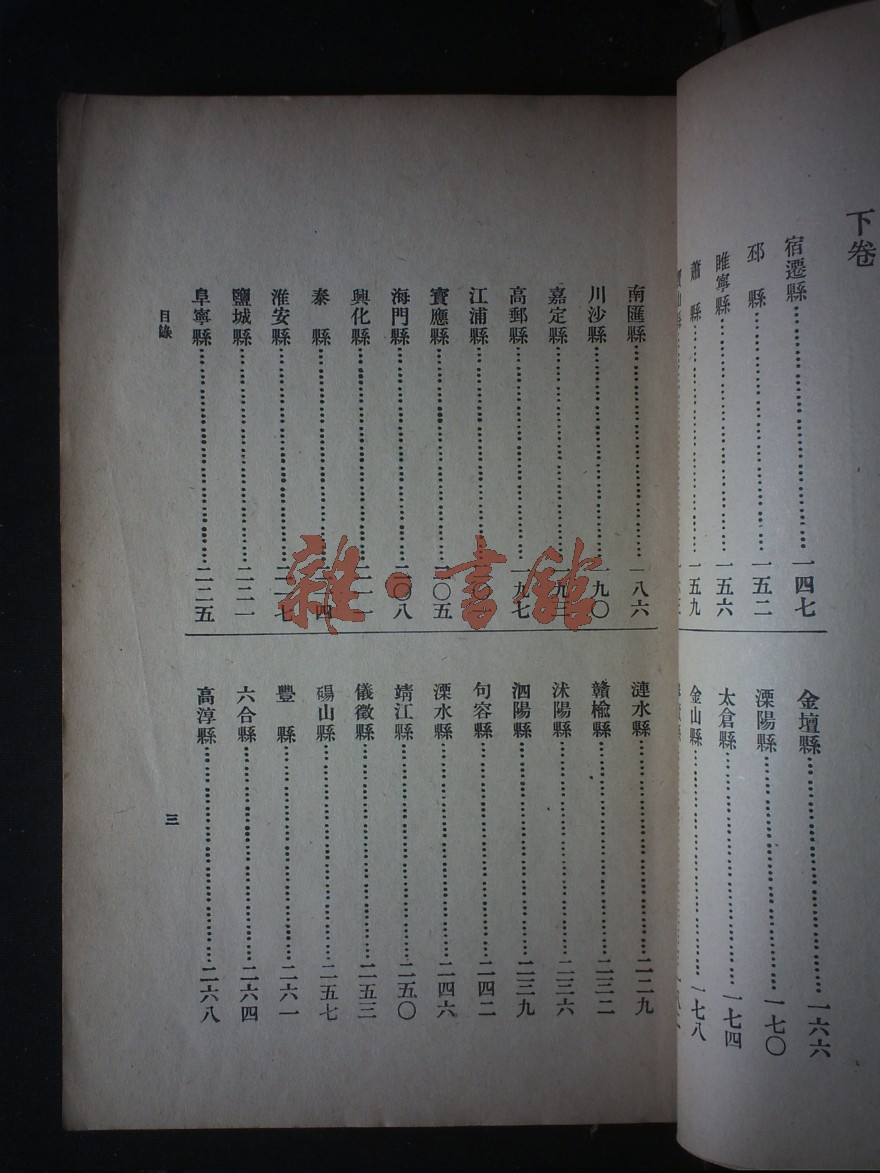 下卷
宿遷縣……一四七
邳　縣……一五二
睢寧縣……一五六
蕭　縣……一五九
寶山縣……
金壇縣……一六六
溧陽縣……一七〇
太倉縣……一七四
金山縣……一七八
南匯縣……一八六
川沙縣……一九〇
嘉定縣……一九三
高郵縣……一九七
江浦縣……二〇一
寶應縣……二〇五
海門縣……二〇八
興化縣……二一一
泰　縣……二一四
淮安縣……二一七
鹽城縣……二二一
阜寧縣……二二五
漣水縣……二二九
贛楡縣……二三二
沭陽縣……二三六
泗陽縣……二三九
句容縣……二四二
溧水縣……二四六
靖江縣……二五〇
儀徵縣……二五三
碭山縣……二五七
豐　縣……二六一
六合縣……二六四
高淳縣……二六八
目錄
三
雜·書館